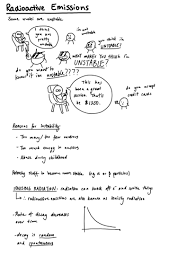 Radioactive Emissions
Some nuclei are unstable
I think
you are
pretty
unstable
I'm not
unstable
my child is
UNSTABLE!
WHAT MAKES YOU THINK I'M
UNSTABLE?
do you want to
know if I'm unstable????
This has
been a great
session that'll
be $1350.
do you accept
credit cards
Reasons for Instability:
- Too many / too few neutrons
- Too much energy in nucleus
- Harsh child childhood
to become more stable. (eg α or β particles)
IONISING RADIATION: radiation can knock off e⁻ and ionise things
∴ radioactive emissions are also known as ionising radiation
- Rate of decay decreases
over time
- decay is random
and spontaneous